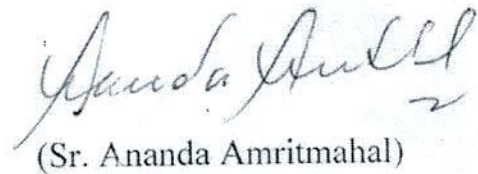 Ananda Amritmahal
(Sr. Ananda Amritmahal)